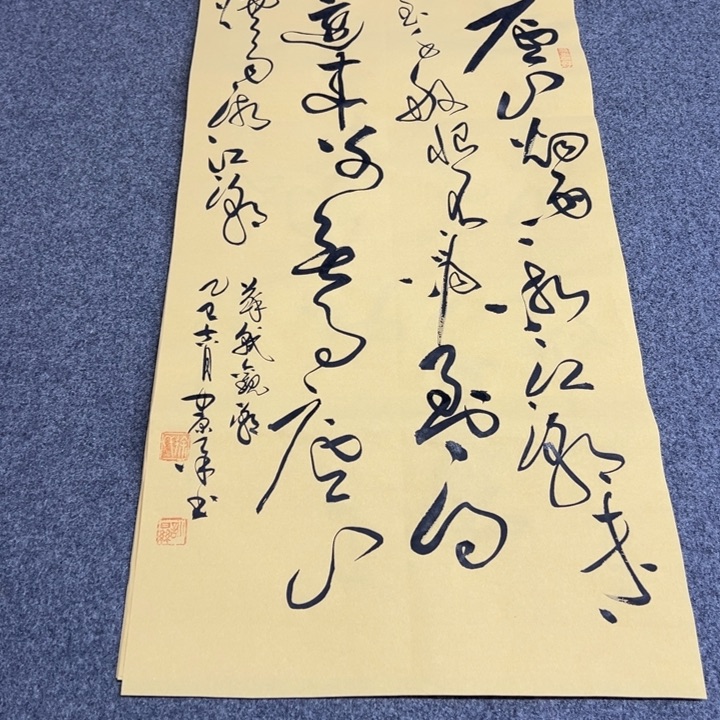 廬山烟雨浙江潮未
至千般恨不消到得
還来别無事廬山
烟雨浙江潮
蘇軾觀潮
乙巳六月
书